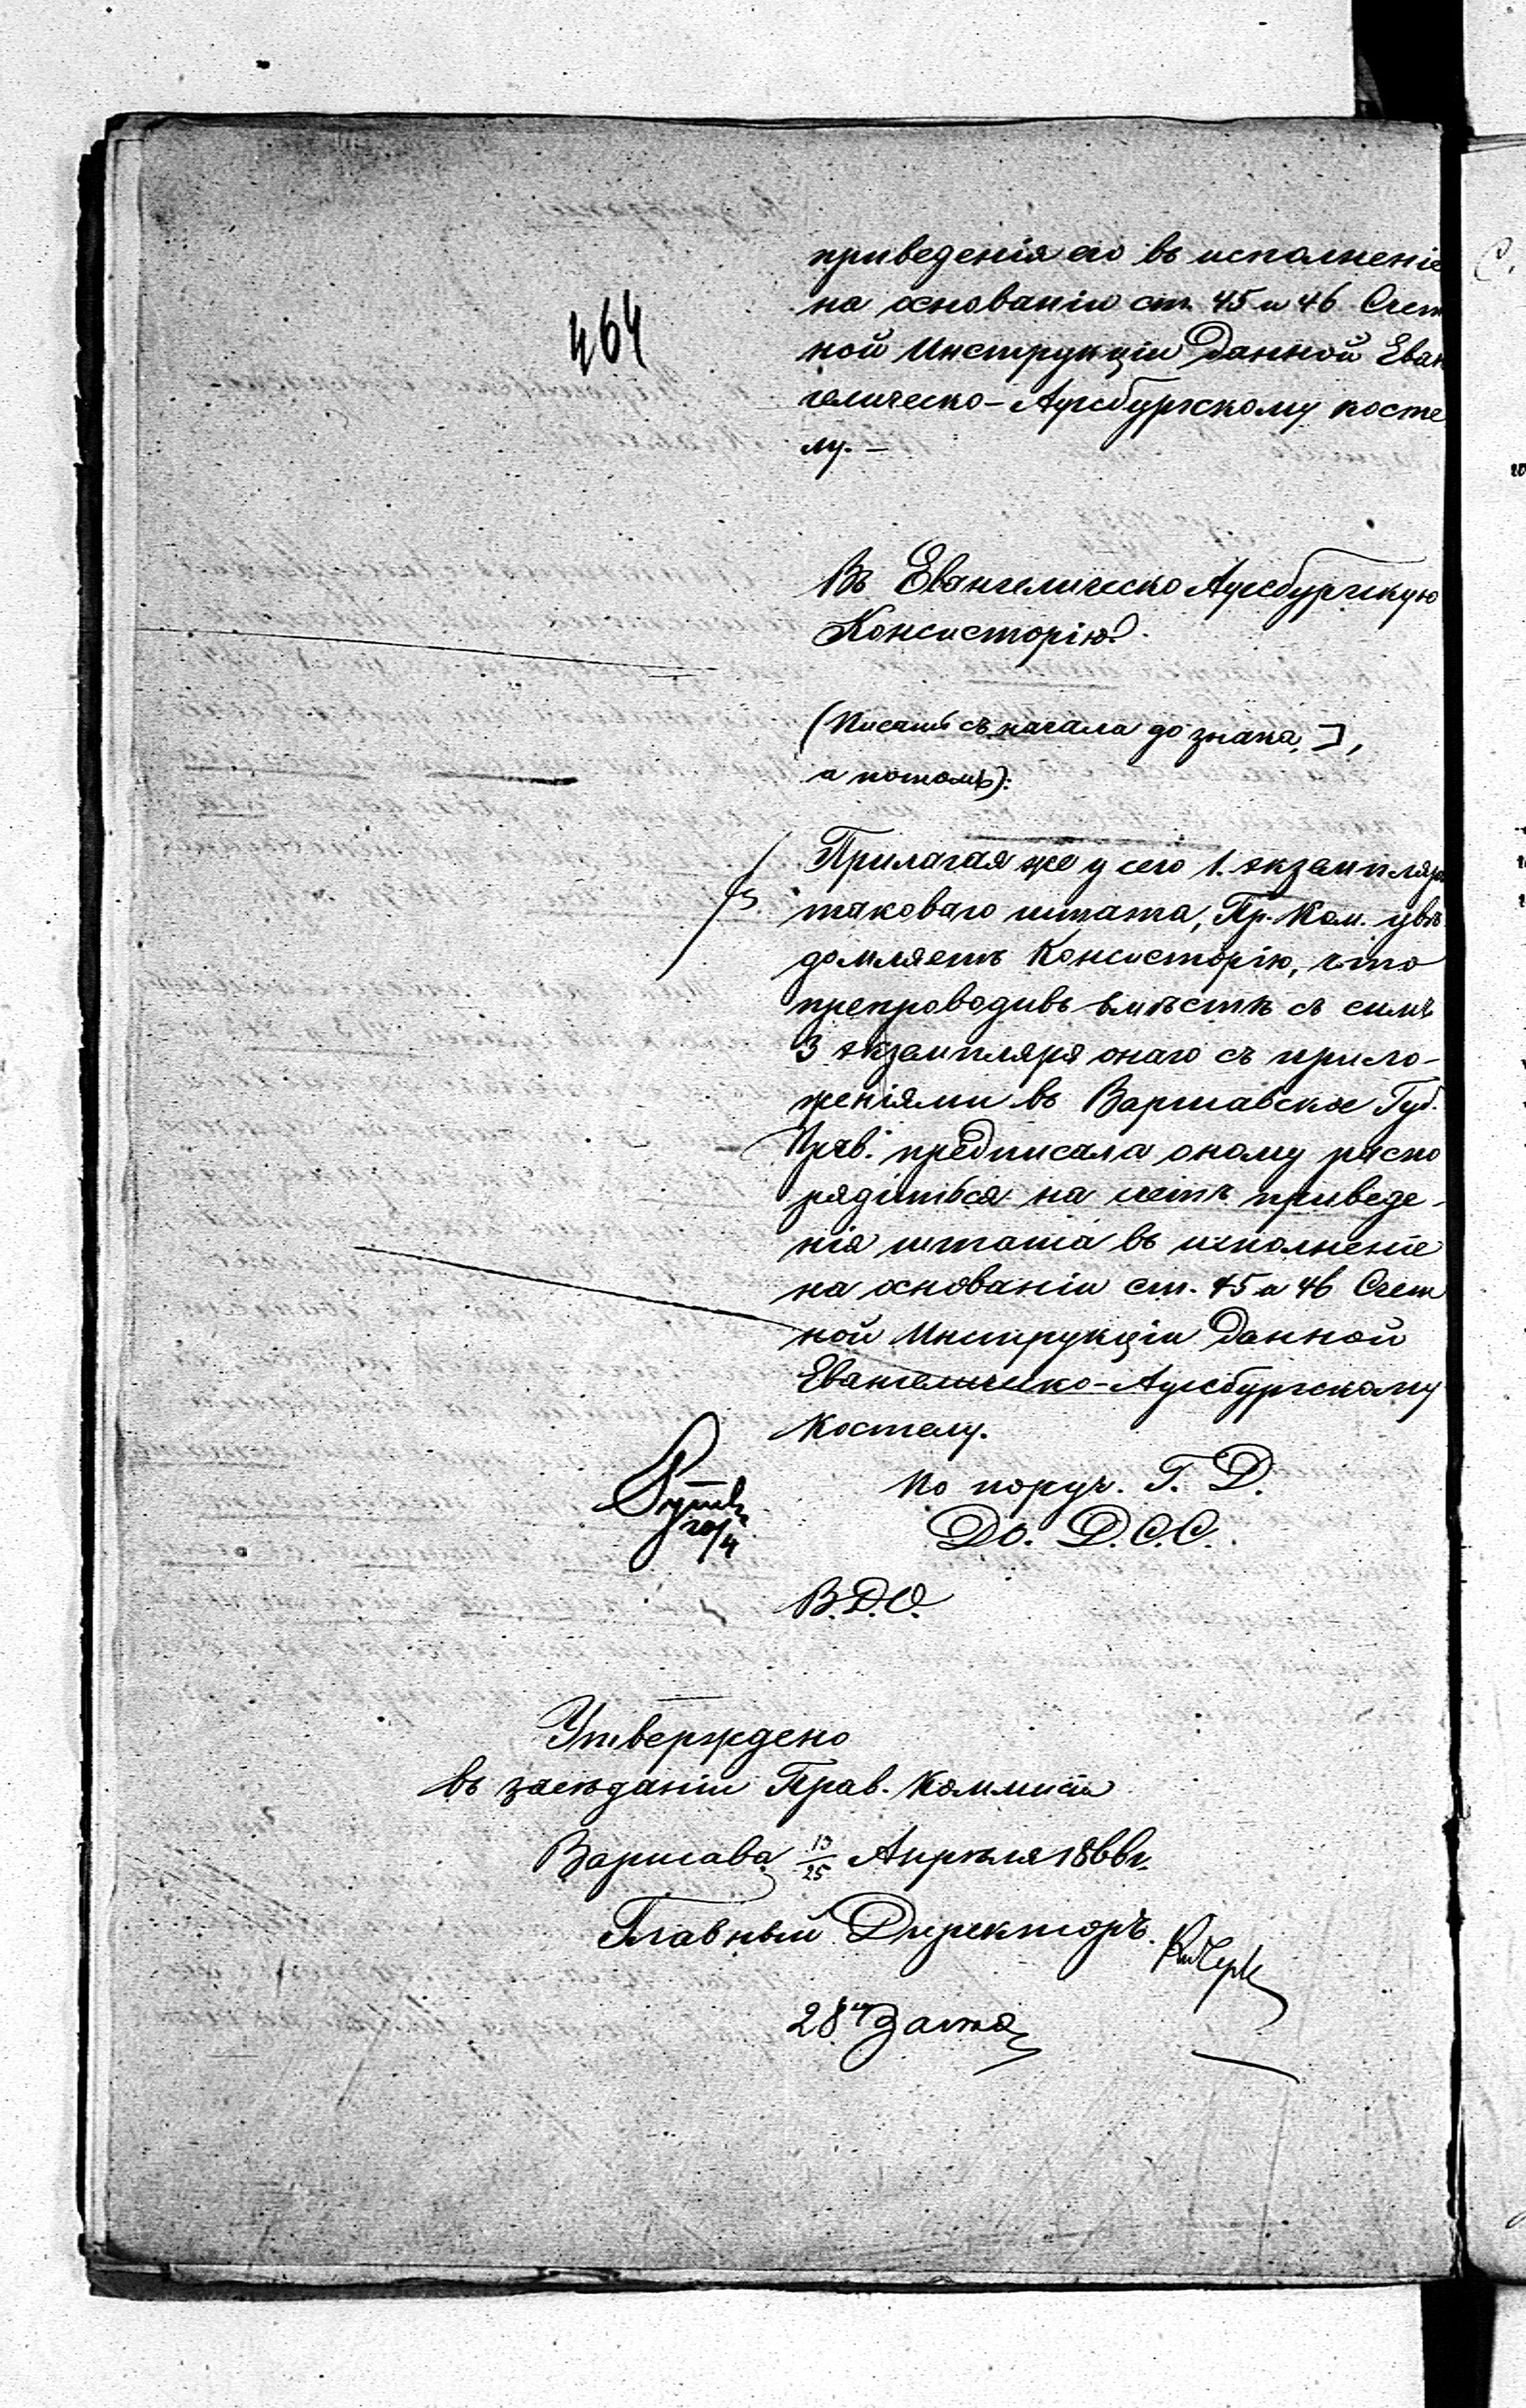 464
приведенія его въ исполненіе
на основаніи ст. 45 и 46 Счет
ной Инструкціи данной Еван
гелическо-Аугсбургскому косте
лу. —
Въ Евангелическо Аугсбургскую
Консисторію.
(Писать съ начала до знака, ],
а потомъ):
Прилагая же у сего 1. экземпляръ
таковаго штата, Пр. Ком. увѣ
домляетъ Консисторію, что
препроводивъ вмѣстѣ съ симъ
3 экземпляра онаго съ прило-
женіями въ Варшавское Губ.
Прав. предписала оному распо
рядиться на счетъ приведе-
нія штата въ исполненіе
на основаніи ст. 45 и 46 Счет
ной Инструкціи данной
Евангелическо-Аугсбургскому
костелу.
По поруч. Г. Д.
До. Д.С.С.
20/4
В.Д.О.
Утверждено
въ засѣданіи Прав. Коммисіи
Варшава 13/25 Апрѣля 1866 г.
Главный Директоръ.